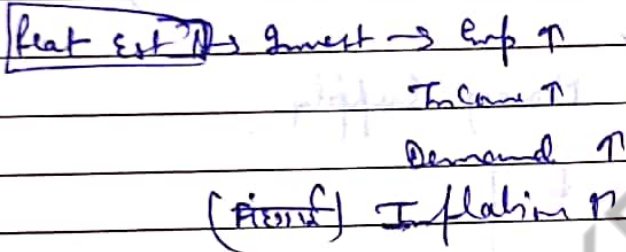 Real Est ↑ → Invest → Emp ↑
Income ↑
Demand ↑
(मंहगाई) Inflation ↑